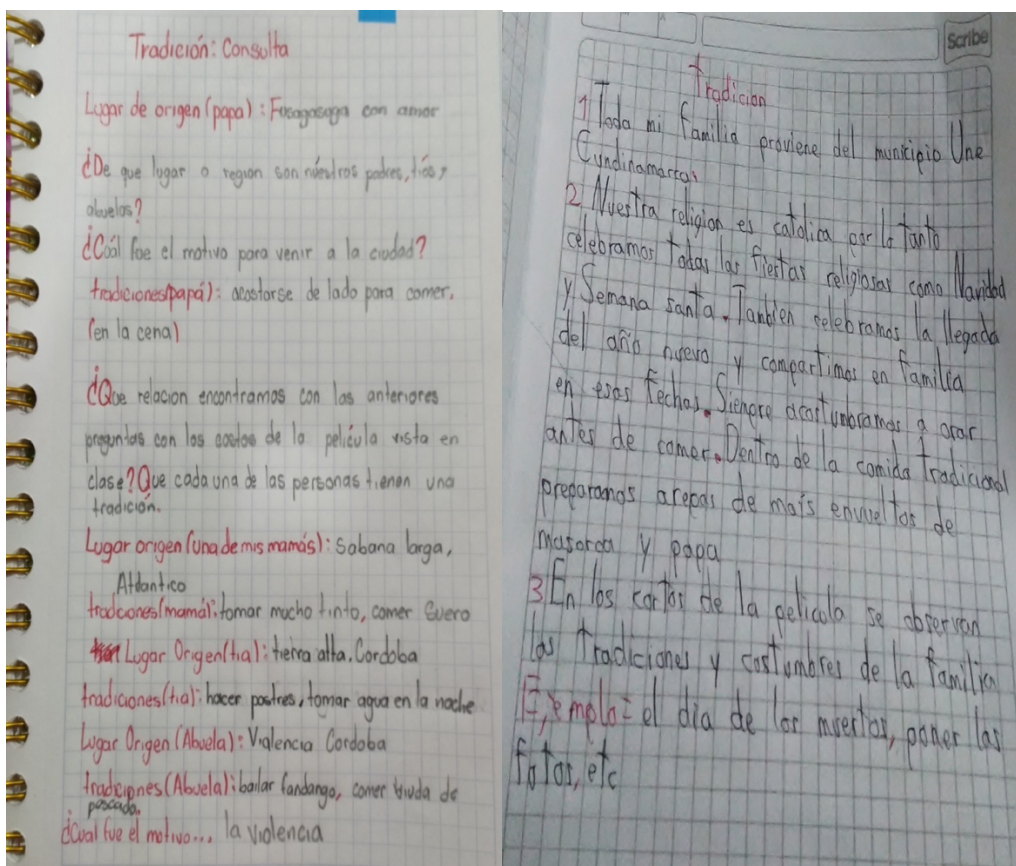 Tradición: Consulta
Lugar de origen (papa): Fusagasuga con amor
¿De que lugar o region son nuestros padres, tíos y
abuelos?
¿Cuál fue el motivo para venir a la ciudad?
tradiciones(papá): acostarse de lado para comer.
(en la cena)
¿Que relacion encontramos con las anteriores
preguntas con los cortos de la película vista en
clase? Que cada una de las personas tienen una
tradición.
Lugar origen (una de mis mamás): Sabana larga,
Atlantico
tradiciones(mamá): tomar mucho tinto, comer Suero
Lugar Origen(tia): tierra alta. Cordoba
tradiciones(tia): hacer postres, tomar agua en la noche
Lugar Origen (Abuela): Valencia Cordoba
tradiciones(Abuela): bailar fandango, comer viuda de
pescado.
¿Cual fue el motivo... la violencia
Scribe
Tradicion
1 Toda mi familia proviene del municipio Une
Cundinamarca.
2 Nuestra religion es catolica por lo tanto
celebramos todas las fiestas religiosas como Navidad
y Semana santa. Tanbien celebramos la llegada
del año nuevo y compartimos en familia
en esas fechas. Siempre acostumbramos a orar
antes de comer. Dentro de la comida tradicional
preparamos arepas de mais envueltos de
masorca y papa
3 En los cortos de la pelicula se observan
las tradiciones y costumbres de la familia
Ejemplo= el dia de los muertos, poner las
fotos, etc